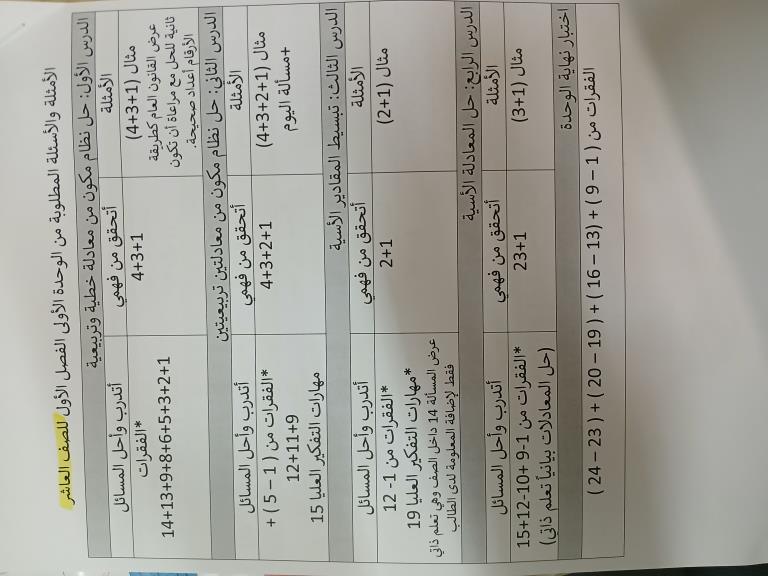 الأمثلة والأسئلة المطلوبة من الوحدة الأولى الفصل الأول للصف العاشر
الدرس الأول: حل نظام مكون من معادلة خطية وتربيعية
الأمثلة
أتحقق من فهمي
أتدرب وأحل المسائل
مثال (1+3+4)
عرض القانون العام كطريقة
ثانية للحل مع مراعاة ان تكون
الأرقام أعداد صحيحة.
1+3+4
*الفقرات
1+2+3+5+6+8+9+13+14
الدرس الثاني: حل نظام مكون من معادلتين تربيعيتين
الأمثلة
أتحقق من فهمي
أتدرب وأحل المسائل
مثال (1+2+3+4)
+مسألة اليوم
1+2+3+4
*الفقرات من ( 1 – 5 ) +
9+11+12
مهارات التفكير العليا 15
الدرس الثالث: تبسيط المقادير الأسية
الأمثلة
أتحقق من فهمي
أتدرب وأحل المسائل
مثال (1+2)
1+2
*الفقرات من 1- 12
*مهارات التفكير العليا 19
عرض المسألة 14 داخل الصف وهي تعلم ذاتي
فقط لإضافة المعلومة لدى الطالب
الدرس الرابع: حل المعادلة الأسية
الأمثلة
أتحقق من فهمي
أتدرب وأحل المسائل
مثال (1+3)
1+23
*الفقرات من 1-9 +10-12+15
(حل المعادلات بيانياً تعلم ذاتي)
اختبار نهاية الوحدة
الفقرات من ( 1 – 9 ) + ( 13 – 16 ) + ( 19 – 20 ) + ( 23 – 24 )